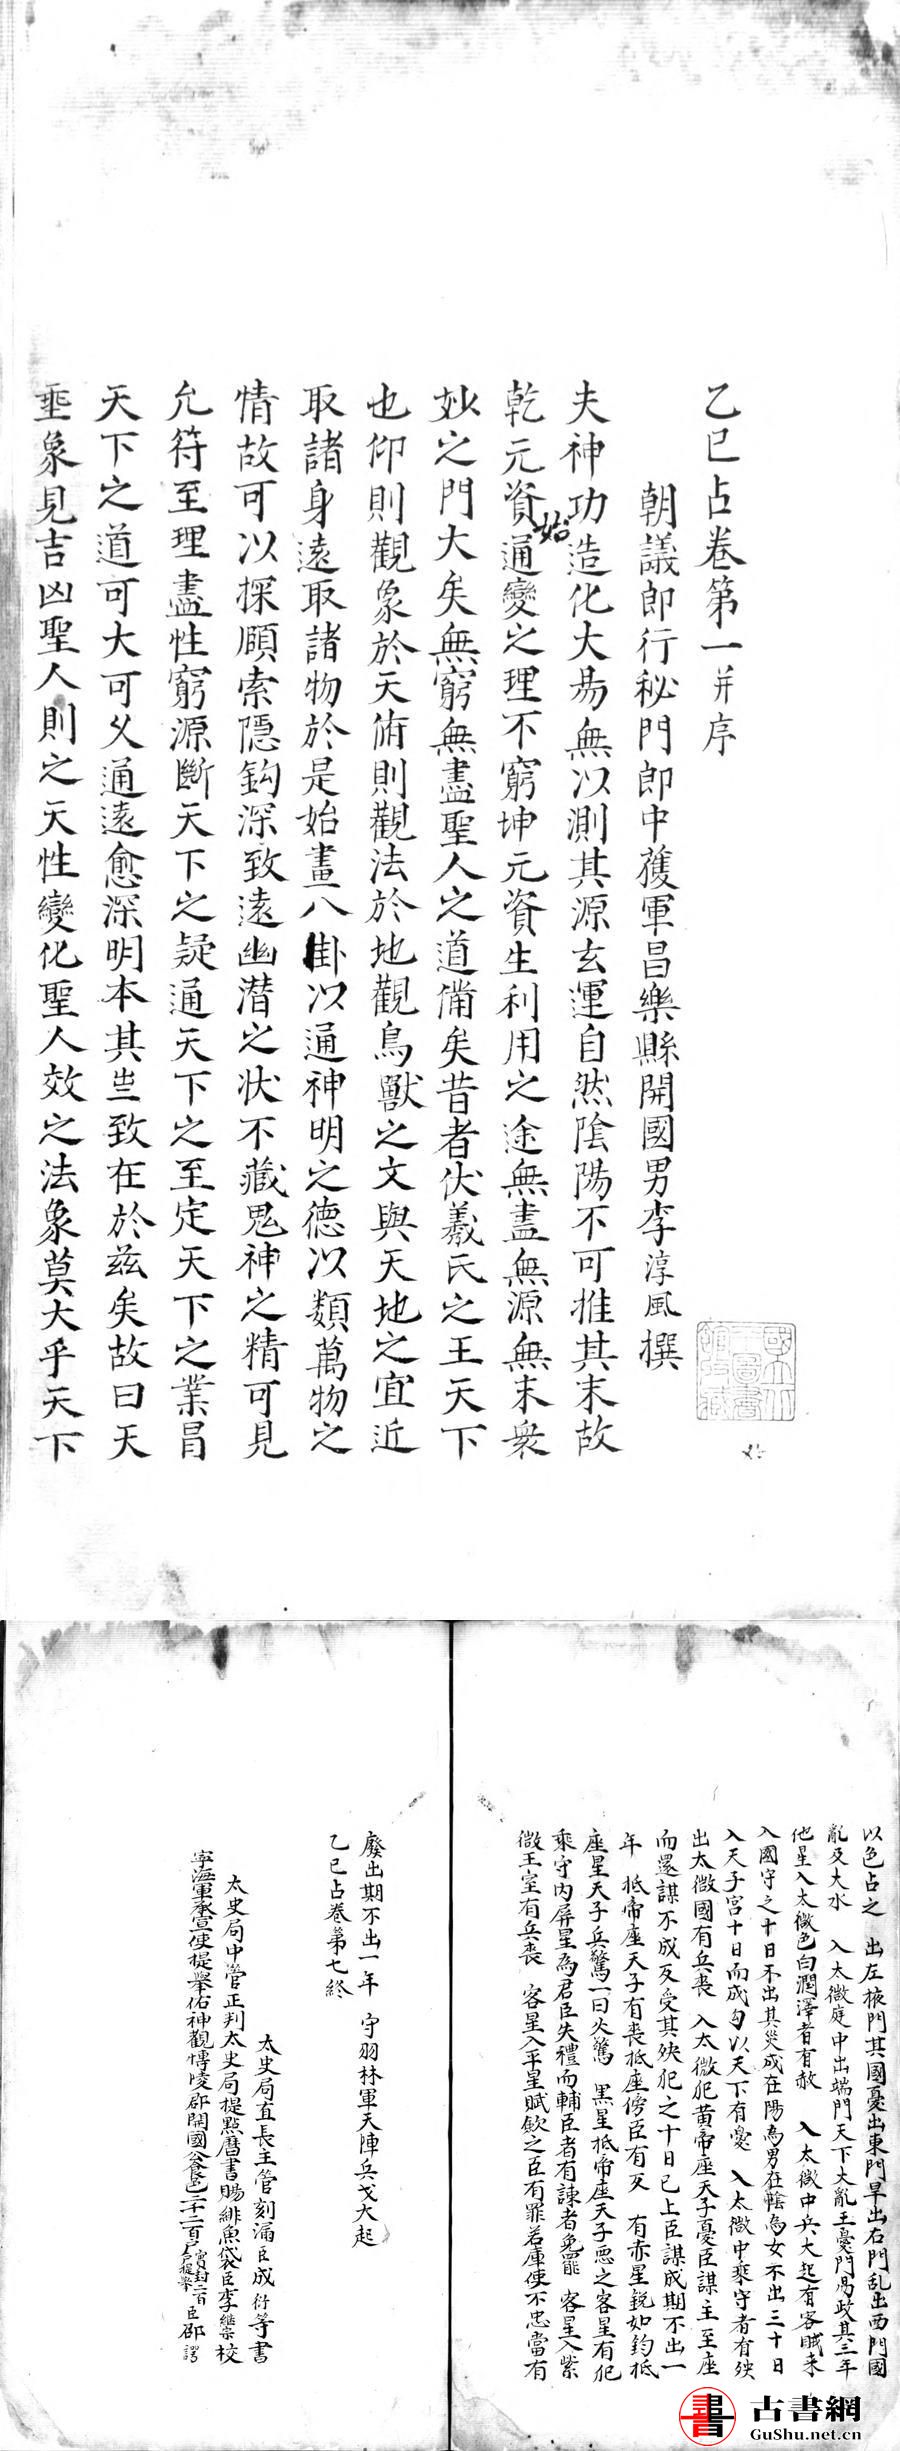 乙巳占卷第一并序
朝議郎行秘門郎中護軍昌樂縣開國男李淳風撰
夫神功造化大易無以測其源玄運自然陰陽不可推其末故
乾元資始通變之理不窮坤元資生利用之途無盡無源無末衆
妙之門大矣無窮無盡聖人之道備矣昔者伏羲氏之王天下
也仰則觀象於天俯則觀法於地觀鳥獸之文與天地之宜近
取諸身遠取諸物於是始畫八卦以通神明之德以類萬物之
情故可以探賾索隱鈎深致遠幽潛之状不藏鬼神之精可見
允符至理盡性窮源斷天下之疑通天下之至定天下之業冒
天下之道可大可久通遠愈深明本其旨致在於兹矣故曰天
垂象見吉凶聖人則之天性變化聖人效之法象莫大乎天下
以色占之 出左掖門其國憂出東門旱出右門乱出西門國
亂及大水 入太微庭中出端門天下大亂王憂門易政其三年
他星入太微色白潤澤者有赦 入太微中兵大起有客賊来
入國守之十日不出其災成在陽為男在陰為女不出三十日
入天子宮十日而成勾以天下有憂 入太微中乘守者有殃
出太微國有兵喪 入太微犯黄帝座天子憂臣謀主至座
而還謀不成反受其殃犯之十日已上臣謀成期不出一
年 抵帝座天子有喪抵座傍臣有反 有赤星鋭如鈎抵
座星天子兵驚一曰火驚 黑星抵帝座天子惡之客星有犯
乘守内屏星為君臣失禮而輔臣者有諫者免罷 客星入紫
微王室有兵喪 客星入平星賦歛之臣有罪若庫使不忠當有
廢出期不出一年 守羽林軍天陣兵戈大起
乙巳占卷第七終
太史局直長主管刻漏臣成衍等書
太史局中管正判太史局提點曆書賜緋魚袋臣李繼宗校
寧海軍承宣使提舉佑神觀博陵郡開國公食邑二千二百户實封二百户提舉臣邵諤
國立北平圖書館收藏
古書網
GuShu.net.cn